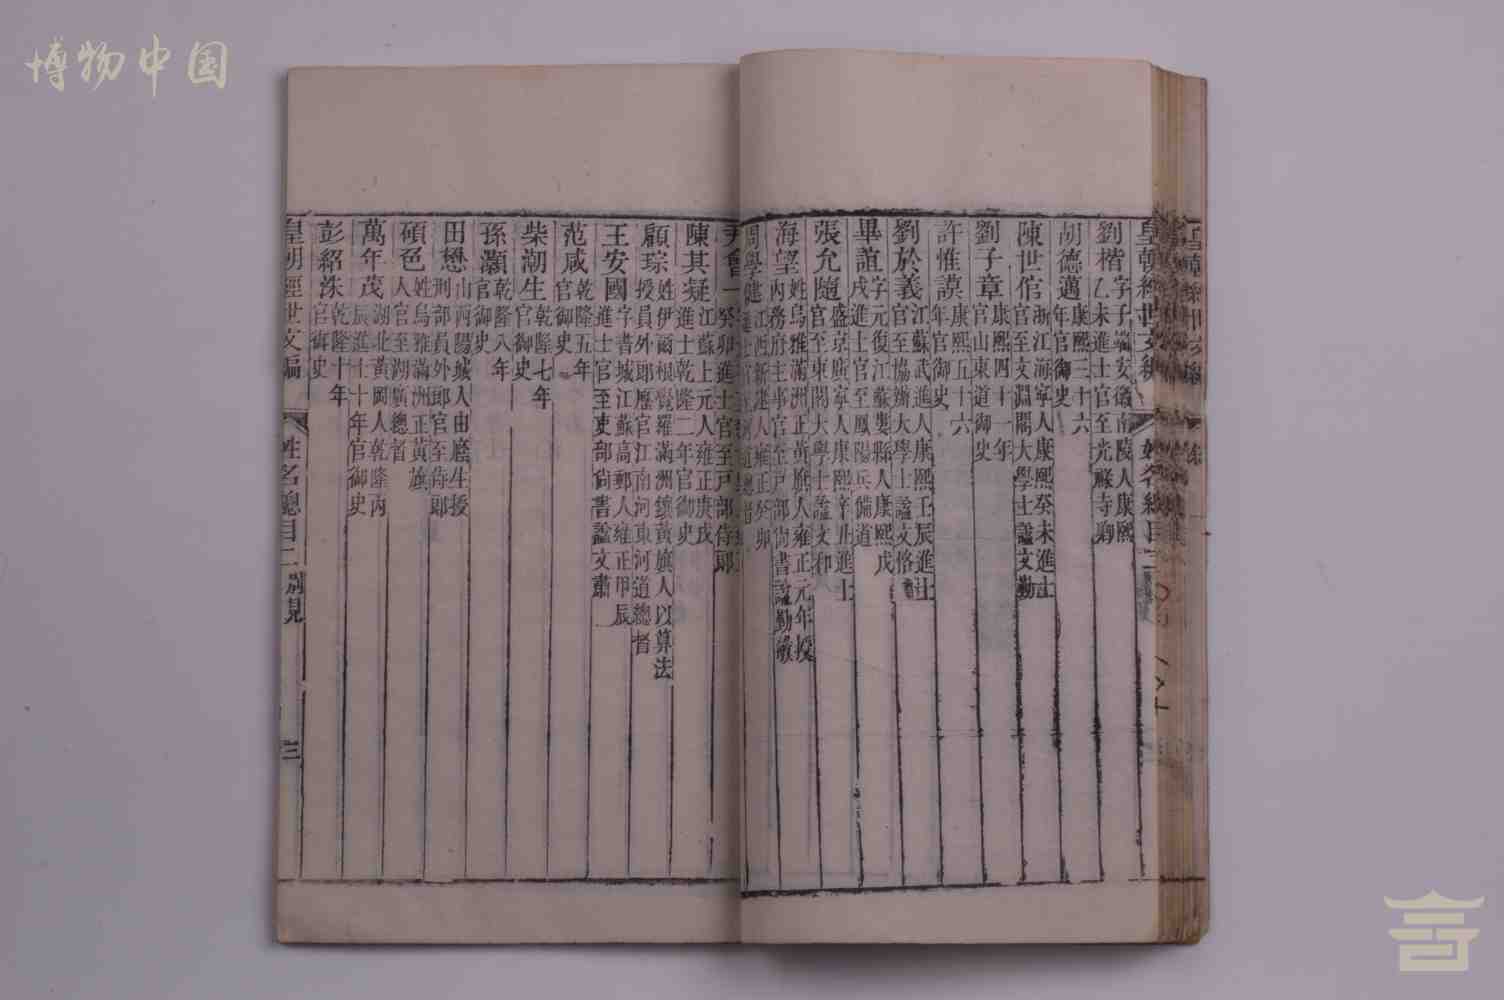 博物中国
皇朝經世文編
劉楷 字子端安徽南陵人康熙乙未進士官至光祿寺卿
胡德邁 康熙三十六年官御史
陳世倌 浙江海寧人康熙癸未進士官至文淵閣大學士諡文勤
劉子章 康熙四十一年官山東道御史
許惟謨 康熙五十六年官御史
劉於義 江蘇武進人康熙壬辰進士官至協辦大學士諡文恪
畢誼 字元復江蘇婁縣人康熙戊戌進士官至鳳陽兵備道
張允隨 盛京廣寧人康熙辛丑進士官至東閣大學士諡文和
海望 姓烏雅滿洲正黃旗人雍正元年授內務府主事官至戶部尚書諡勤恪
周學健 江西新建人雍正癸卯進士官至河道總督
尹會一 癸卯進士官至戶部侍郎
陳其凝 江蘇上元人雍正庚戌進士乾隆二年官御史
顧琮 姓伊爾根覺羅滿洲鑲黃旗人以算法授員外郎歷官江南河東河道總督
王安國 字書城江蘇高郵人雍正甲辰進士官至吏部尚書諡文肅
范咸 乾隆五年官御史
柴潮生 乾隆七年官御史
孫灝 乾隆八年官御史
田懋 山西陽城人由廕生授刑部員外郎官至侍郎
碩色 姓烏雅滿洲正黃旗人官至湖廣總督
萬年茂 湖北黃岡人乾隆丙辰進士十年官御史
彭紹洙 乾隆十年官御史
皇朝經世文編 姓名總目二 別見 三